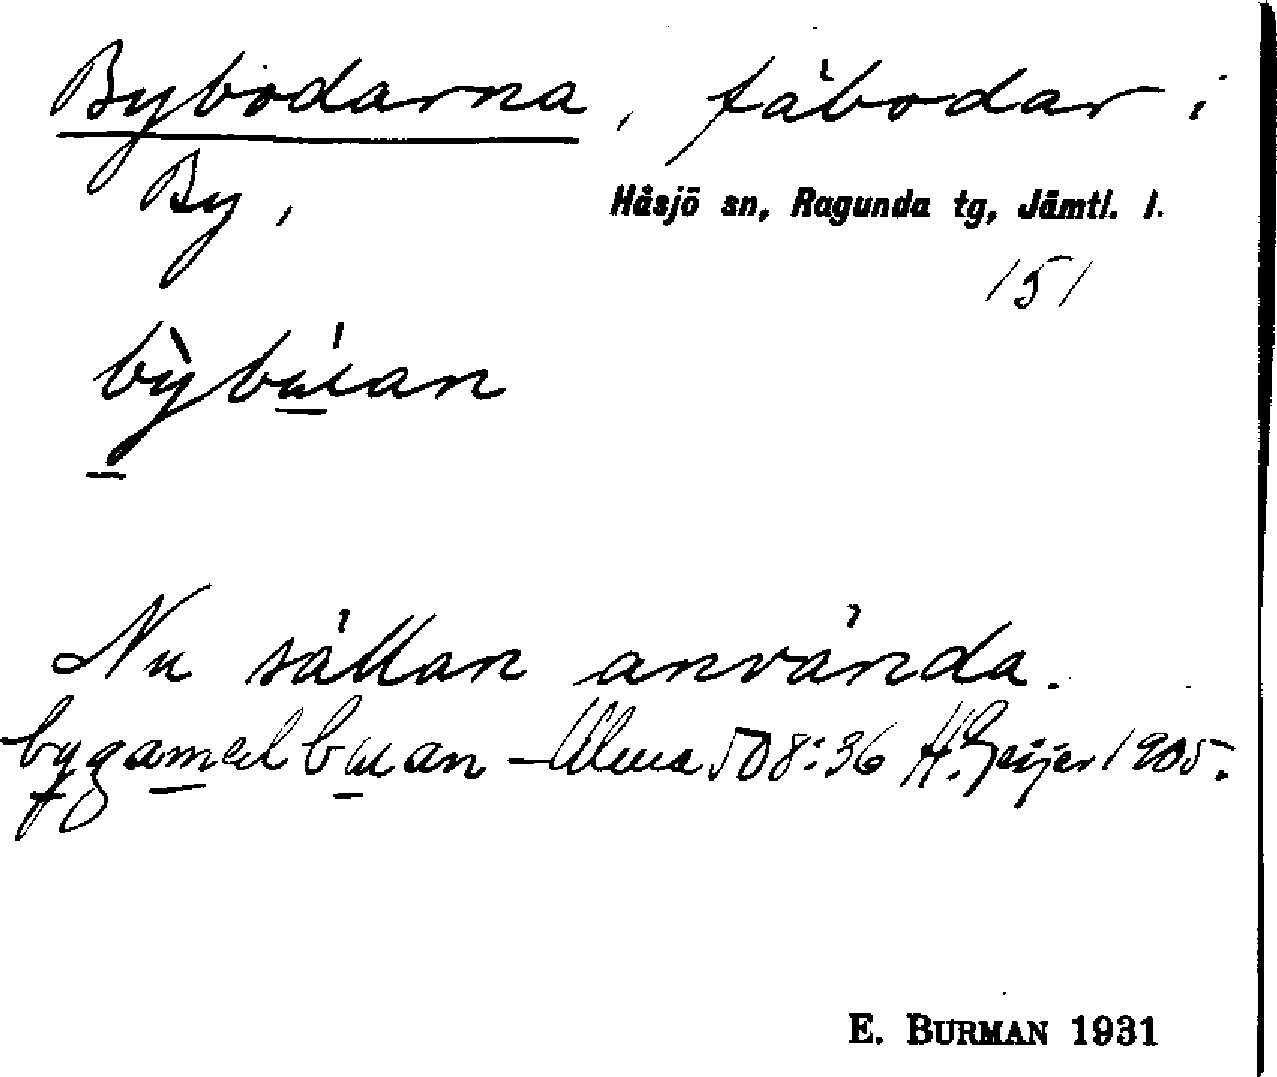 Bybodarna, fäbodar i
By, Håsjö sn, Ragunda tg, Jämtl. l.
151
bỳbu̲ı́an
Nu sällan använda.
bygamelbuan – Ulma 508:36 H. Geijer 1905.
E. BURMAN 1931